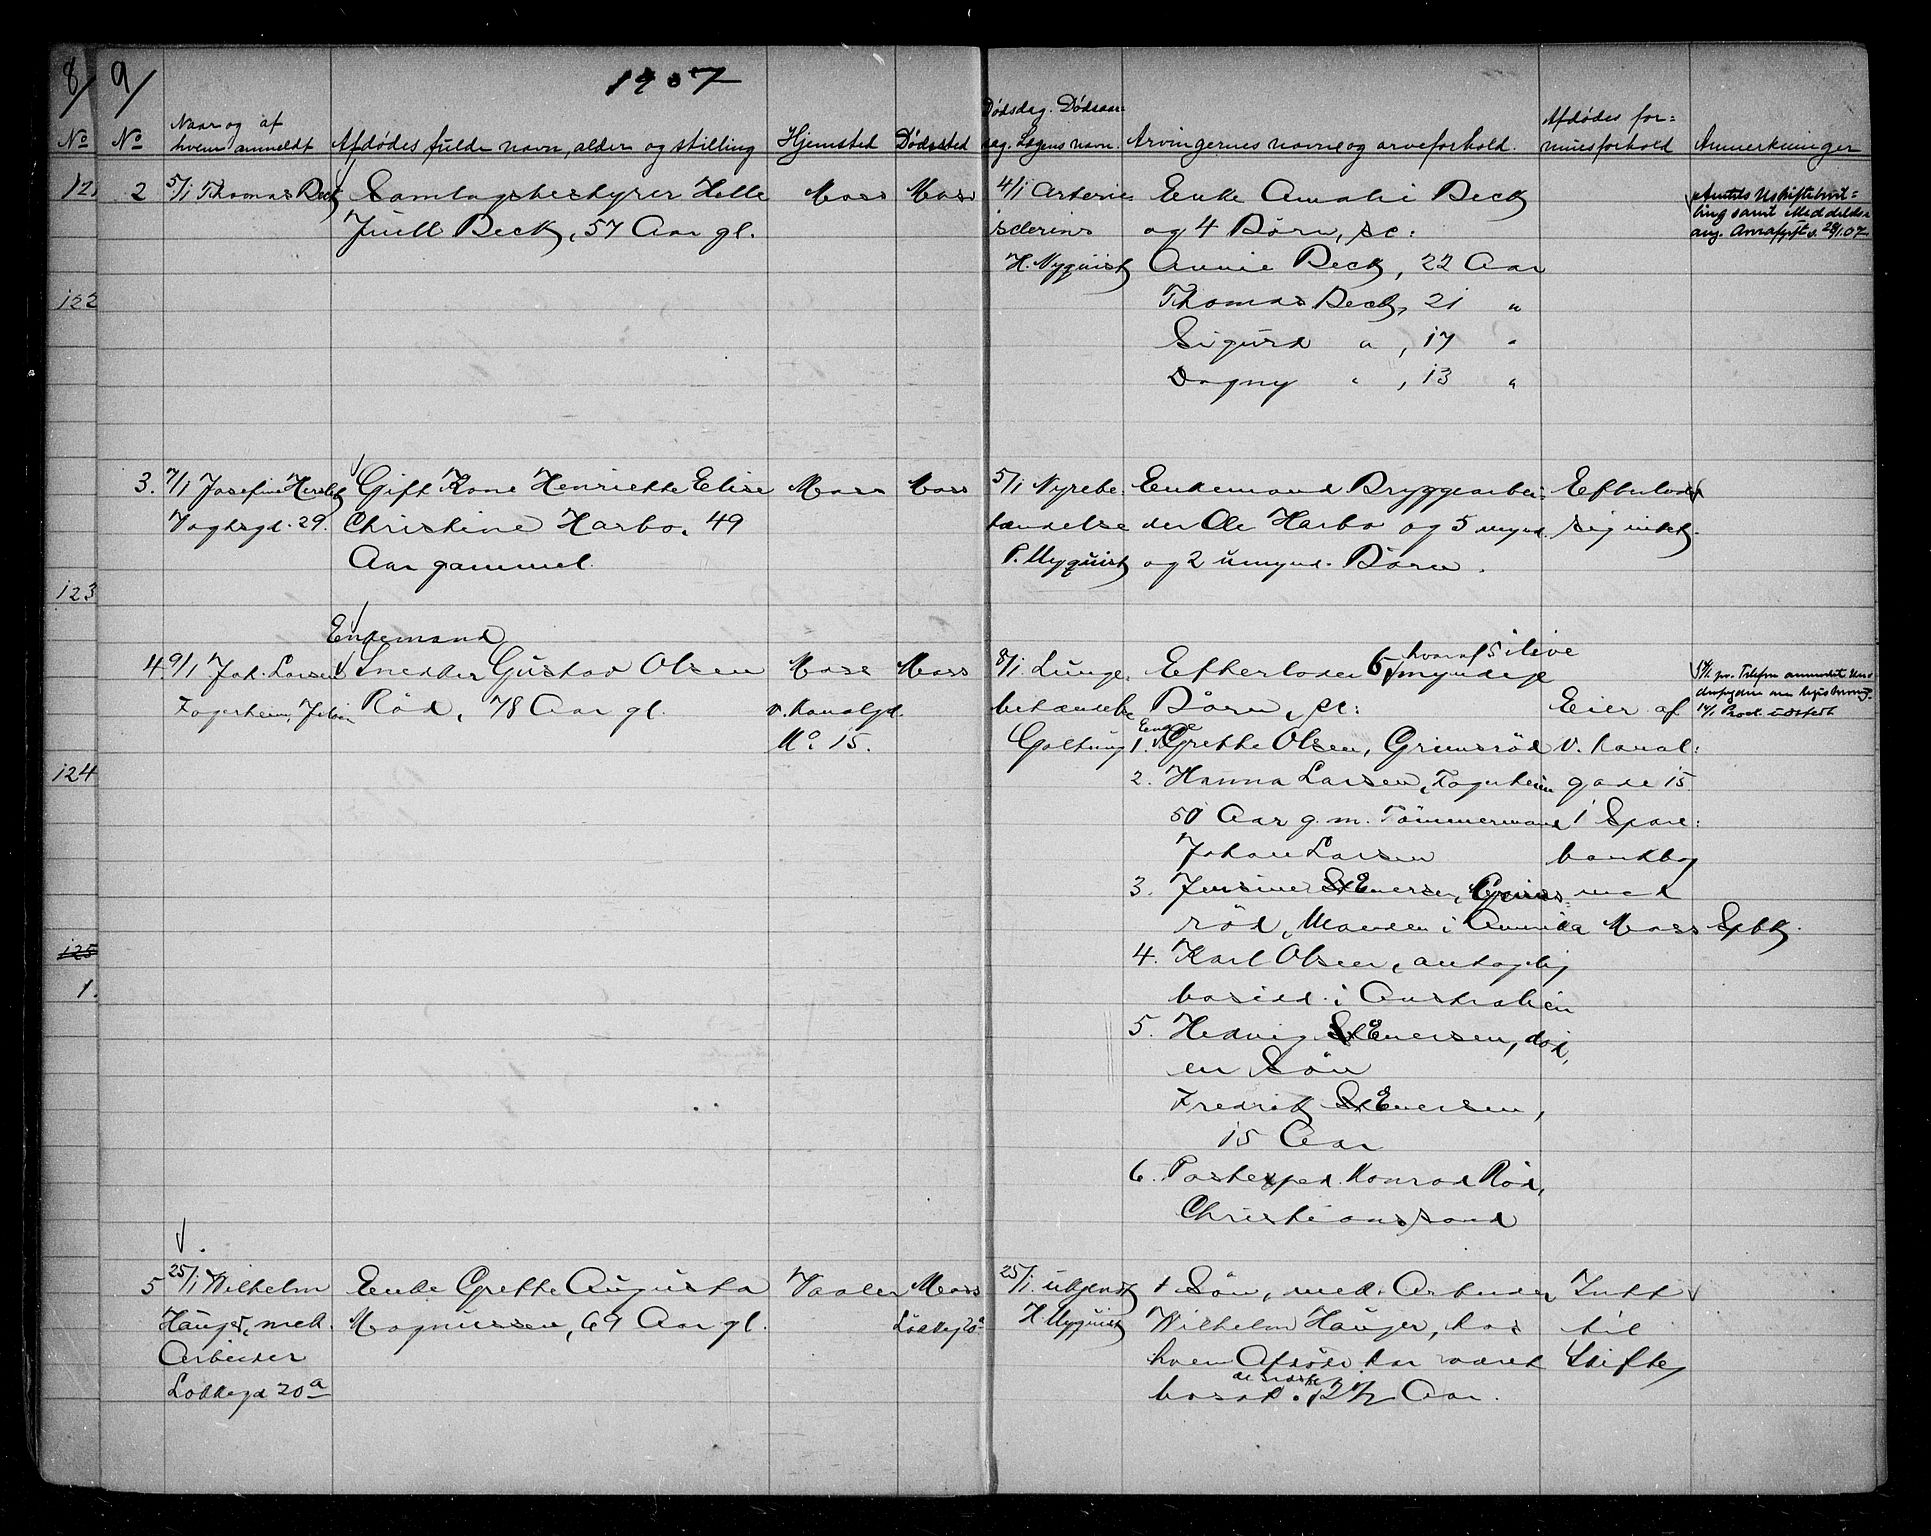 8/ 9/ 1907
No No Naar og af hvem anmeldt Afdødes fulde navn, alder og stilling Hjemsted Dødssted Dødsdag. Dødsaarsag. Lægens navn. Arvingernes navne og arveforhold. Afdødes formuesforhold Anmerkninger
121
122
123
124
125
1.
2 5/1 Thomas Beck
Samlagsbestyrer Helle
Juell Beck, 57 Aar gl.
Moss Moss
4/1 Arterie
sclerins
H. Nyquist
Enke Amalie Beck
og 4 Børn, sc:
Annie Beck, 22 Aar
Thomas Beck, 21 "
Sigurd " , 17 "
Dagny " , 13 "
Amtets Uskiftebevil=
ling samt Meddelelse
ang. Arveafgift d. 28/1.07
3. 7/1 Josefine Herslet
Vogtsgd. 29.
Gift Kone Henriette Elise
Christine Harbo, 49
Aar gammel.
Moss Moss
5/1 Nyrebe-
tændelse
P. Nyquist
Enkemand Bryggearbei=
der Ole Harbo og 5 mynd.
og 2 umynd. Børn.
Efterlod
sig intet.
4. 9/1 Joh. Larsen
Fagerheim, Jeløen
Enkemand
Snedker Gustav Olsen
Rød, 78 Aar gl.
Moss Moss
v. Kanalgd.
No 15.
8/1 Lunge-
betændelse
Galtung
Efterlader 6 hvoraf 5 i live myndige
Børn, sc:
1. Enke Grethe Olsen, Grimsrød
2. Hanna Larsen, Fagerheim
50 Aar g. m. Tømmermand
Johan Larsen
3. Jensine Enersen, Grims=
rød, Manden i Amerika
4. Karl Olsen, antagelig
bosidd. i Australien
5. Hedvig Enersen, død,
en Søn
Fredrik Enersen,
15 Aar
6. Postexped. Konrad Rød,
Christianssand
Eier af
V. Kanal=
gade 15
1 Spare=
bankbog
med
Moss Spbk.
5 25/1 Wilhelm
Hauger, mek.
Arbeider
Lokkegd 20a
Enke Grethe Augusta
Magnussen, 69 Aar gl.
Vaaler Moss
Lokkeg 20a
25/1. ubekjendt
H. Nyquist
1 Søn, mek. Arbeider
Wilhelm Hauger, hos
hvem Afdøde har været
bosat de sidste 2 1/2 Aar.
Intet
til
Skifte